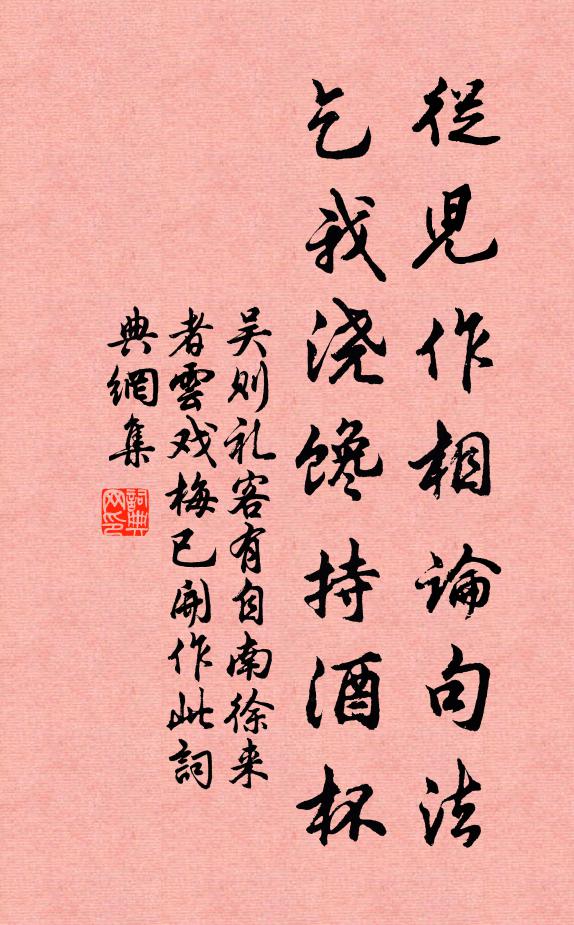 從兒作相論句法
乞我浇馋持酒杯
吴则礼客有自南徐来
者雲戏梅已開作此詞
典網集
詞典網印